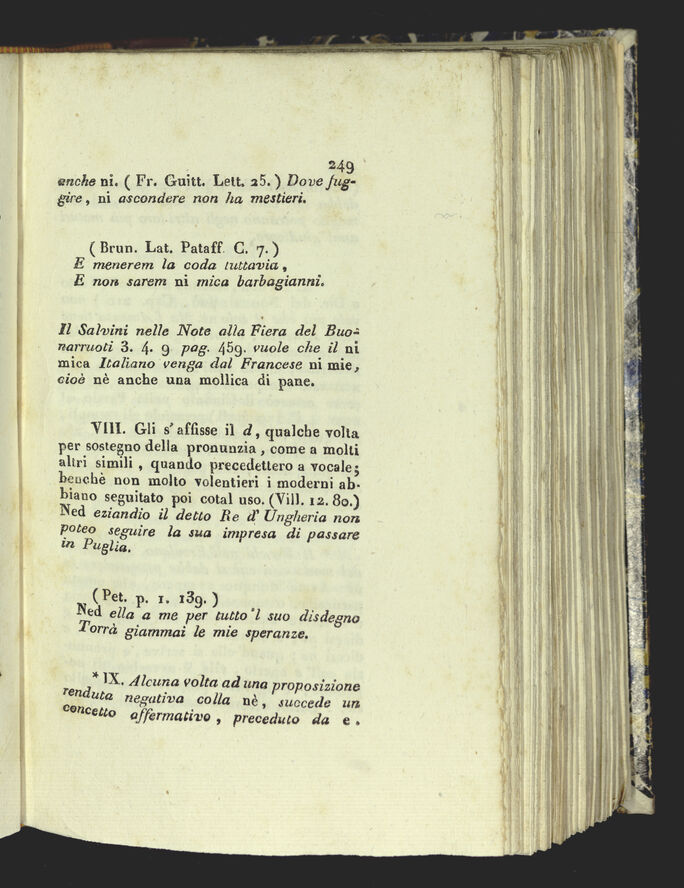 249
anche ni. ( Fr. Guitt. Lett. 25. ) Dove fug-
gire, ni ascondere non ha mestieri.
( Brun. Lat. Pataff. C. 7. )
E menerem la coda tuttavia,
E non sarem ni mica barbagianni.
Il Salvini nelle Note alla Fiera del Buo-
narruoti 3. 4. 9 pag. 459. vuole che il ni
mica Italiano venga dal Francese ni mie,
cioè nè anche una mollica di pane.
VIII. Gli s'affisse il d, qualche volta
per sostegno della pronunzia, come a molti
altri simili, quando precedettero a vocale;
benchè non molto volentieri i moderni ab-
biano seguitato poi cotal uso. (Vill. 12. 80.)
Ned eziandio il detto Re d'Ungheria non
poteo seguire la sua impresa di passare
in Puglia.
(Pet. p. 1. 139. )
Ned ella a me per tutto 'l suo disdegno
Torrà giammai le mie speranze.
* IX. Alcuna volta ad una proposizione
renduta negativa colla nè, succede un
concetto affermativo, preceduto da e.